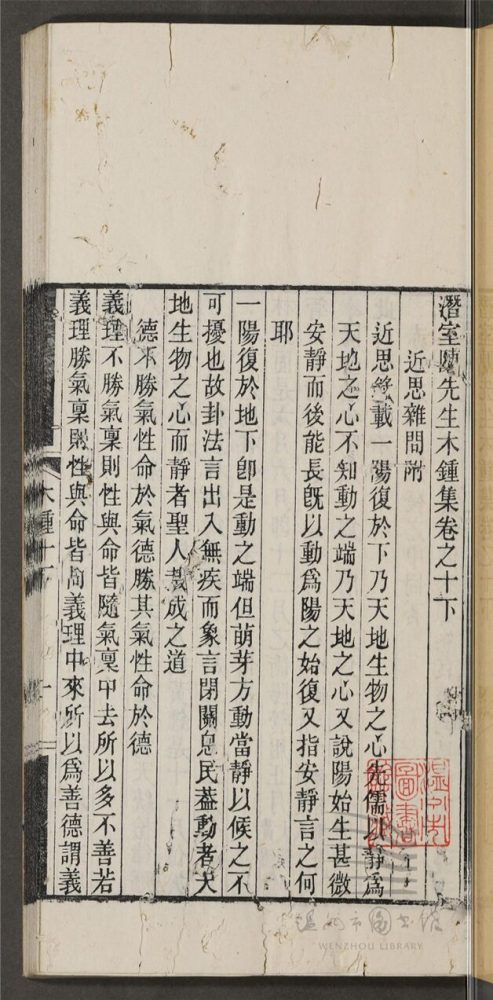 潛室陳先生木鍾集卷之十下
近思雜問附
近思錄載一陽復於下乃天地生物之心先儒以靜爲
天地之心不知動之端乃天地之心又說陽始生甚微
安靜而後能長旣以動爲陽之始復又指安靜言之何
耶
一陽復於地下卽是動之端但萌芽方動當靜以候之不
可擾也故卦法言出入無疾而象言閉關息民葢動者天
地生物之心而靜者聖人裁成之道
德不勝氣性命於氣德勝其氣性命於德
義理不勝氣稟則性與命皆隨氣稟中去所以多不善若
義理勝氣稟則性與命皆向義理中來所以爲善德謂義
木鍾十下
一
溫州市圖書館
WENZHOU LIBRARY